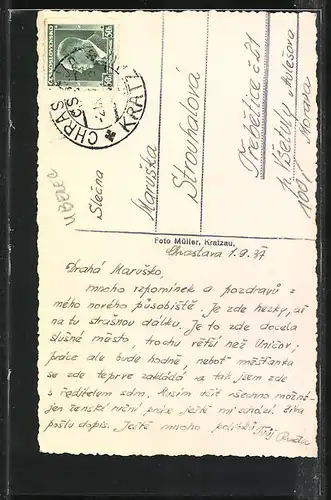 ČESKOSLOVENSKO
50h
CHRAS
KRATZ
Slečna
Maruška
Strouhalová
č. 21
Morava
Foto Müller, Kratzau.
Chrastava 1.9.37
Drahá Maruško,
mnoho vzpomínek a pozdravů z
mého nového působiště. Je zde hezky, až
na tu strašnou dálku. Je to zde docela
slušné město, trochu větší než Uničov;
práce ale bude hodně, neboť měšťanka
se zde teprve zakládá a tak jsem zde
s ředitelem sám. Musím učit všechno možné
jen ženské ruční práce ještě mi schází.
pošlu dopis. Ještě mnoho